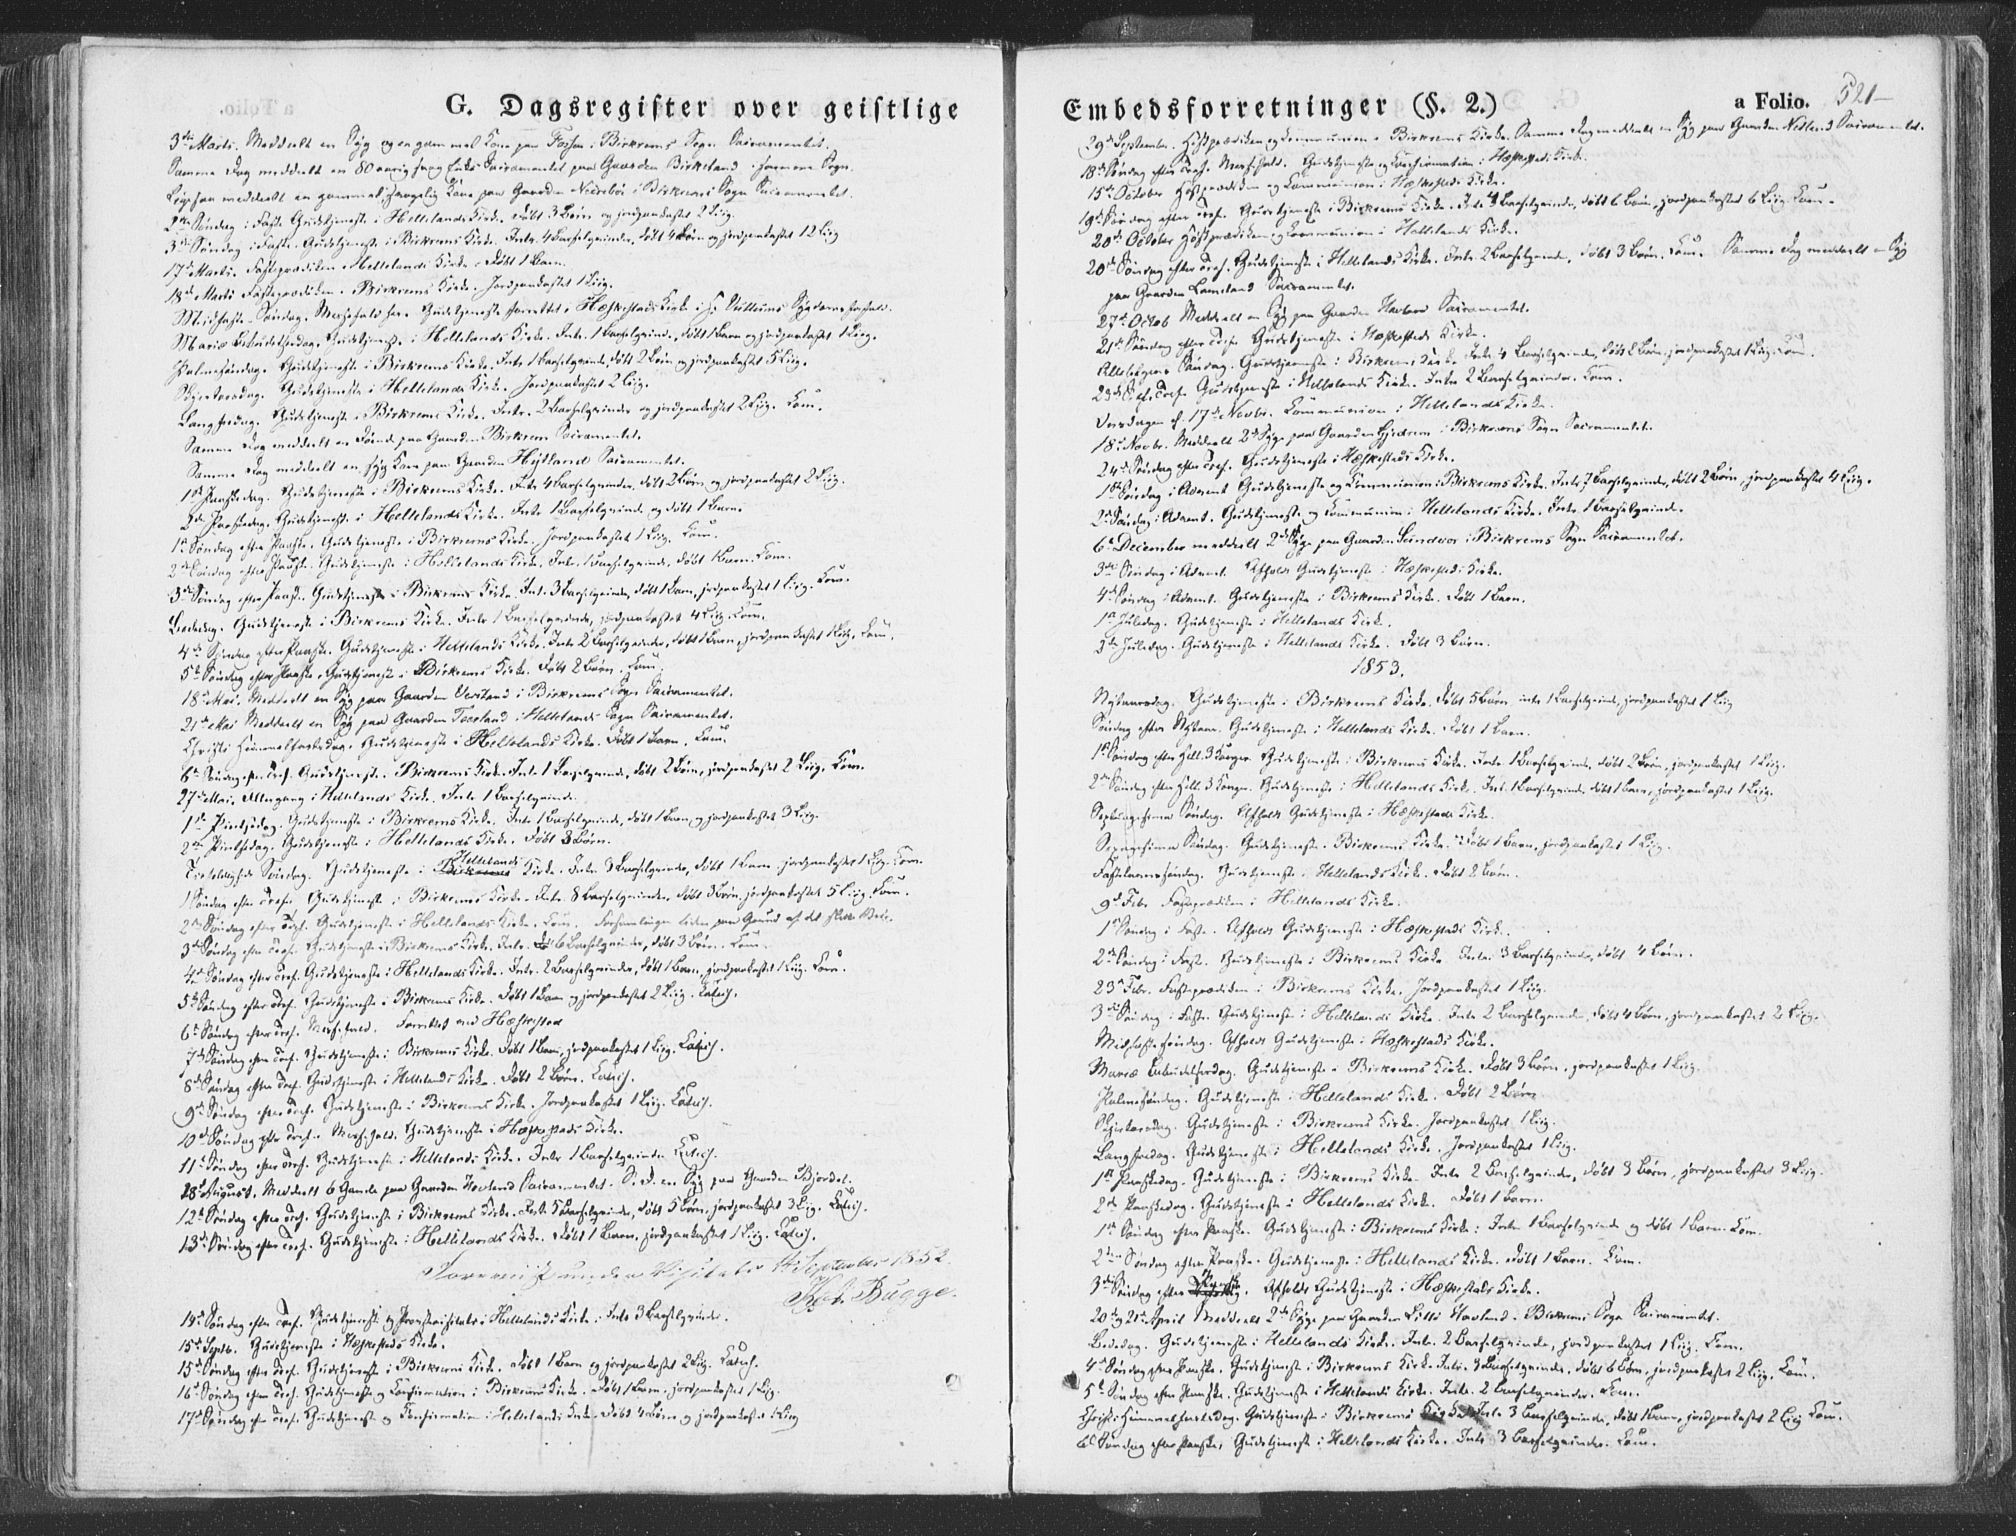 G. Dagsregister over geistlige
3die Marts. Meddeelt en Syg og en gammel Kone paa Fossen i Birkrems Sogn Sacramentet.
Samme Dag meddeelt en 80 aarig svag Enke Sacramentet paa Gaarden Birkeland i samme Sogn.
Ligesaa meddeelt en gammel, svagelig Kone paa Gaarden Nedrebø i Birkrems Sogn Sacramentet.
2den Søndag i Faste. Gudstjeneste i Hellelands Kirke. Døbt 3 Børn og jordpaakastet 2 Liig.
3die Søndag i Faste. Gudstjeneste i Birkrems Kirke. Intr. 4 Barselqvinder, døbt 4 Børn og jordpaakastet 12 Liig
17de Marts. Fasteprædiken i Hellelands Kirke. Døbt 1 Barn.
18de Marts Fasteprædiken i Birkrems Kirke. Jordpaakastet 1 Liig.
Midfaste-Søndag. Messefald her. Gudstjeneste forrettet i Hæskestads Kirke i Sygdomsforfald.
Mariæ Bebudelsesdag. Gudstjeneste i Hellelands Kirke. Intr. 1 Barselqvinde, døbt 1 Barn og jordpaakastet 1 Liig.
Palmesøndag. Gudstjeneste i Birkrems Kirke. Intr. 1 Barselqvinde, døbt 2 Børn og jordpaakastet 5 Liig.
Skjærtorsdag. Gudstjeneste i Hellelands Kirke. Jordpaakastet 2 Liig.
Langfredag. Gudstjeneste i Birkrems Kirke. Intr. 2 Barselqvinder og jordpaakastet 2 Liig. Com.
Samme Dag meddeelt en paa Gaarden Birkrem Sacramentet.
Samme Dag meddeelt en syg Kone paa Gaarden Højland Sacramentet.
1ste Paaskedag. Gudstjeneste i Birkrems Kirke. Intr. 4 Barselqvinder, døbt 2 Børn og jordpaakastet 2 Liig.
2den Paaskedag. Gudstjeneste i Hellelands Kirke. Intr. 1 Barselqvinde og døbt 1 Barn.
1ste Søndag efter Paaske. Gudstjeneste i Birkrems Kirke. Jordpaakastet 1 Liig. Com.
2den Søndag efter Paaske. Gudstjeneste i Hellelands Kirke. Intr. 1 Barselqvinde, døbt 1 Barn. Com.
3die Søndag efter Paaske. Gudstjeneste i Birkrems Kirke. Intr. 3 Barselqvinder, døbt 1 Barn, jordpaakastet 1 Liig. Com.
Bededag. Gudstjeneste i Birkrems Kirke. Intr. 1 Barselqvinde, jordpaakastet 4 Liig. Com.
4de Søndag efter Paaske. Gudstjeneste i Hellelands Kirke. Intr. 2 Barselqvinder, døbt 1 Barn, jordpaakastet 1 Liig. Com.
5te Søndag efter Paaske. Gudstjeneste i Birkrems Kirke. Døbt 2 Børn. Com.
18de Mai. Meddeelt en Syg paa Gaarden Versland i Birkrems Sogn Sacramentet.
21de Mai Meddeelt en Syg paa Gaarden Terland i Hellelands Sogn Sacramentet.
Christi Himmelfartsdag. Gudstjeneste i Hellelands Kirke. Døbt 1 Barn. Com.
6te Søndag efter Gudstjeneste i Birkrems Kirke. Intr. 1 Barselqvinde, døbt 2 Børn, jordpaakastet 2 Liig. Com.
27de Mai. Altergang i Hellelands Kirke. Intr. 1 Barselqvinde.
1ste Pintsedag. Gudstjeneste i Birkrems Kirke. Intr. 1 Barselqvinde, døbt 1 Barn og jordpaakastet 3 Liig.
2den Pintsedag. Gudstjeneste i Hellelands Kirke. Døbt 3 Børn.
Trefoldigheds Søndag. Gudstjeneste i Hellelands Kirke. Intr. 3 Barselqvinder, døbt 1 Barn, jordpaakastet 1 Liig. Com.
1 Søndag efter Tref. Gudstjeneste i Birkrems Kirke. Intr. 8 Barselqvinder, døbt 3 Børn, jordpaakastet 5 Liig. Com.
2den Søndag efter Tref. Gudstjeneste i Hellelands Kirke. Com. Forsamlingen liden paa Grund af det slette
3die Søndag efter Tref. Gudstjeneste i Birkrems Kirke. Intr. 6 Barselqvinder, døbt 3 Børn. Com.
4de Søndag efter Tref. Gudstjeneste i Hellelands Kirke. Intr. 2 Barselqvinder, døbt 1 Barn, jordpaakastet 1 Liig. Com.
5te Søndag efter Tref. Gudstjeneste i Birkrems Kirke. Døbt 1 Barn og jordpaakastet 2 Liig. Catech.
6te Søndag efter Tref. Messefald. Forrettet ved Hæskestad
7de Søndag efter Tref. Gudstjeneste i Birkrems Kirke. Døbt 1 Barn, jordpaakastet 1 Liig. Catech.
8de Søndag efter Tref. Gudstjeneste i Hellelands Kirke. Døbt 2 Børn. Catech.
9de Søndag efter Tref. Gudstjeneste i Birkrems Kirke. Jordpaakastet 1 Liig. Catech.
10de Søndag efter Tref. Messefald. Gudstjeneste i Hæskestads Kirke.
11te Søndag efter Tref. Gudstjeneste i Hellelands Kirke. Intr. 1 Barselqvinde. Catech.
28de August. Meddeelt 6 Gamle paa Gaarden Hovland Sacramentet. S. D. en Syg paa Gaarden Bjordal.
12te Søndag efter Tref. Gudstjeneste i Birkrems Kirke. Intr. 5 Barselqvinder, døbt 5 Børn, jordpaakastet 3 Liig. Catech.
13de Søndag efter Tref. Gudstjeneste i Hellelands Kirke. Døbt 1 Barn, jordpaakastet 1 Liig. Catech.
Foreviist under Visitats September 1852.
Bugge.
14de Søndag efter Tref. Gudstjeneste og Provstevisitats i Hellelands Kirke. Intr. 3 Barselqvinder.
15de Septb. Gudstjeneste i Hæskestads Kirke.
15de Søndag efter Tref. Gudstjeneste i Birkrems Kirke. Døbt 1 Barn og jordpaakastet 2 Liig. Catech.
16de Søndag efter Tref. Gudstjeneste og Confirmation i Birkrems Kirke. Døbt 1 Barn, jordpaakastet 1 Liig.
17de Søndag efter Tref. Gudstjeneste og Confirmation i Hellelands Kirke. Døbt 4 Børn og jordpaakastet 1 Liig
Embedsforretninger (§. 2.)
a Folio. 521
29de September. Høstprædiken og Communion i Birkrems Kirke. Samme Dag meddeelt en Syg paa Gaarden Netland Sacramentet.
18de Søndag efter Tref. Messefald. Gudstjeneste og Confirmation i Hæskestads Kirke.
15de October Høstprædiken og Communion i Hæskestads Kirke.
19de Søndag efter Tref. Gudstjeneste i Birkrems Kirke. Intr. 3 Barselqvinder, døbt 6 Børn, jordpaakastet 6 Liig. Com.
20de October Høstprædiken og Communion i Hellelands Kirke.
20de Søndag efter Tref. Gudstjeneste i Hellelands Kirke. Intr. 2 Barselqvinder, døbt 3 Børn. Com. Samme Dag meddeelt en Syg
paa Gaarden Lameland Sacramentet.
27de Octob Meddeelt en Syg paa Gaarden Hovland Sacramentet.
21de Søndag efter Tref. Gudstjeneste i Hæskestads Kirke.
Allehelgens Søndag. Gudstjeneste i Birkrems Kirke. Intr. 4 Barselqvinder, døbt 2 Børn, jordpaakastet 1 Liig. Com.
23de S. ef. Tref. Gudstjeneste i Hellelands Kirke. Intr. 2 Barselqvinder. Com.
Onsdagen d. 17de Novbr. Communion i Hellelands Kirke.
18de Novbr. Meddeelt 2de Syge paa Gaarden Gjedrem i Birkrems Sogn Sacramentet.
24de Søndag efter Tref. Gudstjeneste i Hæskestads Kirke.
1ste Søndag i Advent Gudstjeneste og Communion i Birkrems Kirke. Intr. 7 Barselqvinder, døbt 2 Børn, jordpaakastet 4 Liig.
2den Søndag i Advent. Gudstjeneste og Communion i Hellelands Kirke. Intr. 1 Barselqvinde.
6te December meddeelt 2de Syge paa Gaarden i Birkrems Sogn Sacramentet.
3die Søndag i Advent. Afholdt Gudstjeneste i Hæskestads Kirke.
4de Søndag i Advent. Gudstjeneste i Birkrems Kirke. Døbt 1 Barn.
1ste Juledag. Gudstjeneste i Hellelands Kirke.
2den Juledag. Gudstjeneste i Hellelands Kirke. Døbt 3 Børn.
1853.
Nytaarsdag. Gudstjeneste i Birkrems Kirke. Døbt 5 Børn, intr. 1 Barselqvinde, jordpaakastet 1 Liig
Søndag efter Nytaar. Gudstjeneste i Hellelands Kirke. Døbt 1 Barn.
1ste Søndag efter Hell. 3 Konger. Gudstjeneste i Birkrems Kirke. Intr. 1 Barselqvinde, døbt 2 Børn, jordpaakastet 1 Liig.
2den Søndag efter Hell. 3 Konger. Gudstjeneste i Hellelands Kirke. Intr. 1 Barselqvinde, døbt 1 Barn, jordpaakastet 1 Liig.
Septuagesima Søndag. Afholdt Gudstjeneste i Hæskestads Kirke.
Sexagesima Søndag. Gudstjeneste i Birkrems Kirke. Døbt 1 Barn, jordpaakastet 1 Liig.
Fastelavnssøndag. Gudstjeneste i Hellelands Kirke. Døbt 2 Børn.
9de Febr. Fasteprædiken i Hellelands Kirke.
1ste Søndag i Faste. Afholdt Gudstjeneste i Hæskestads Kirke.
2den Søndag i Faste. Gudstjeneste i Birkrems Kirke Intr. 3 Barselqvinder, døbt 4 Børn.
23de Febr. Fasteprædiken i Birkrems Kirke. Jordpaakastet 1 Liig.
3die Søndag i Faste. Gudstjeneste i Hellelands Kirke. Intr. 2 Barselqvinder, døbt 4 Børn, jordpaakastet 2 Liig.
Midfaste Søndag. Afholdt Gudstjeneste i Hæskestads Kirke.
Mariæ Bebudelsesdag. Gudstjeneste i Birkrems Kirke. Døbt 3 Børn, jordpaakastet 1 Liig.
Palmesøndag. Gudstjeneste i Hellelands Kirke. Døbt 2 Børn
Skjærtorsdag. Gudstjeneste i Birkrems Kirke. Jordpaakastet 1 Liig.
Langfredag. Gudstjeneste i Hellelands Kirke. Jordpaakastet 1 Liig.
1ste Paaskedag. Gudstjeneste i Birkrems Kirke. Intr. 2 Barselqvinder, døbt 3 Børn, jordpaakastet 3 Liig.
2den Paaskedag. Gudstjeneste i Hellelands Kirke. Døbt 1 Barn.
1ste Søndag efter Paaske. Gudstjeneste i Birkrems Kirke. Intr. 1 Barselqvinde og døbt 1 Barn. Com.
2den Søndag efter Paaske. Gudstjeneste i Hellelands Kirke. Døbt 1 Barn. Com.
3die Søndag efter Paaske. Afholdt Gudstjeneste i Hæskestads Kirke.
20de og 21de April Meddeelt 2de Syge paa Gaarden Lille Hovland i Birkrems Sogn Sacramentet.
Bededag. Gudstjeneste i Hellelands Kirke. Intr. 2 Barselqvinder, jordpaakastet 1 Liig. Com.
4de Søndag efter Paaske. Gudstjeneste i Birkrems Kirke. Intr. 3 Barselqvinder, døbt 6 Børn, jordpaakastet 2 Liig. Com.
5te Søndag efter Paaske. Gudstjeneste i Hellelands Kirke. Intr. 2 Barselqvinder. Com.
Christi Himmelfartsdag. Gudstjeneste i Birkrems Kirke. Intr. 3 Barselqvinder, døbt 1 Barn, jordpaakastet 2 Liig Com.
6te Søndag efter Paaske, Gudstjeneste i Hellelands Kirke. Intr. 3 Barselqvinder. Com.